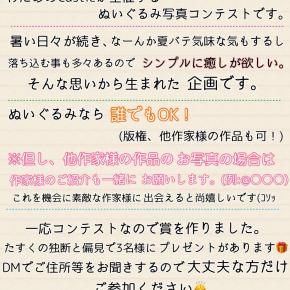 ぬいぐるみ写真コンテストです。
暑い日々が続き、なーんか夏バテ気味な気もするし
落ち込む事も多々あるので シンプルに癒しが欲しい。
そんな思いから生まれた 企画です。
ぬいぐるみなら 誰でもOK！
(版権、他作家様の作品も可！)
※但し、他作家様の作品の お写真の場合は
作家様のご紹介も一緒に お願いします。(例:@〇〇〇)
これを機会に素敵な作家様に出会えると尚嬉しいです(ｺｿｯ
一応コンテストなので賞を作りました。
たすくの独断と偏見で3名様に プレゼントがあります🎁
DMでご住所等をお聞きするので大丈夫な方だけ
ご参加ください